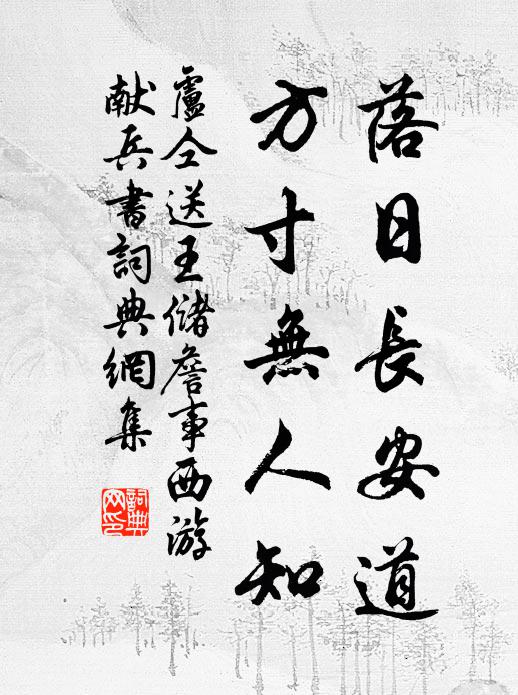 落日長安道
方寸無人知
盧仝送王儲詹事西游
献兵書詞典網集
詞典
网印